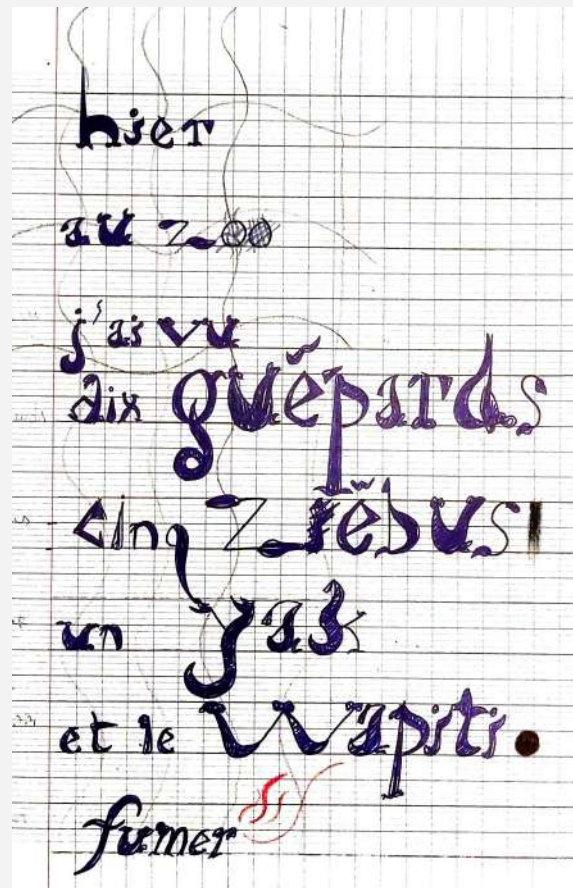 hier
au zoo
j'ai vu
dix guépards
cinq zébus
un yak
et le wapiti.
fumer